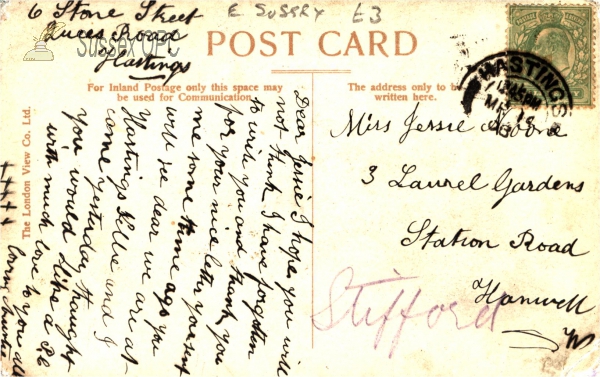 6 Stone Street
Road
Hastings
E SUSSEX £3
Sussex OPC
POST CARD
For Inland Postage only this space may
be used for Communication.
The address only to be
written here.
The London View Co. Ltd.
HASTINGS
Dear Jessie I hope you will
not think I have forgotten
to wish you and thank you
for your nice letter you sent
me some time ago you
will see dear we are at
Hastings Lillie and I
came yesterday thought
you would like a P.C
with much love to you all
++++
Miss Jessie
3 Laurel Gardens
Station Road
Hanwell
W
Stifford